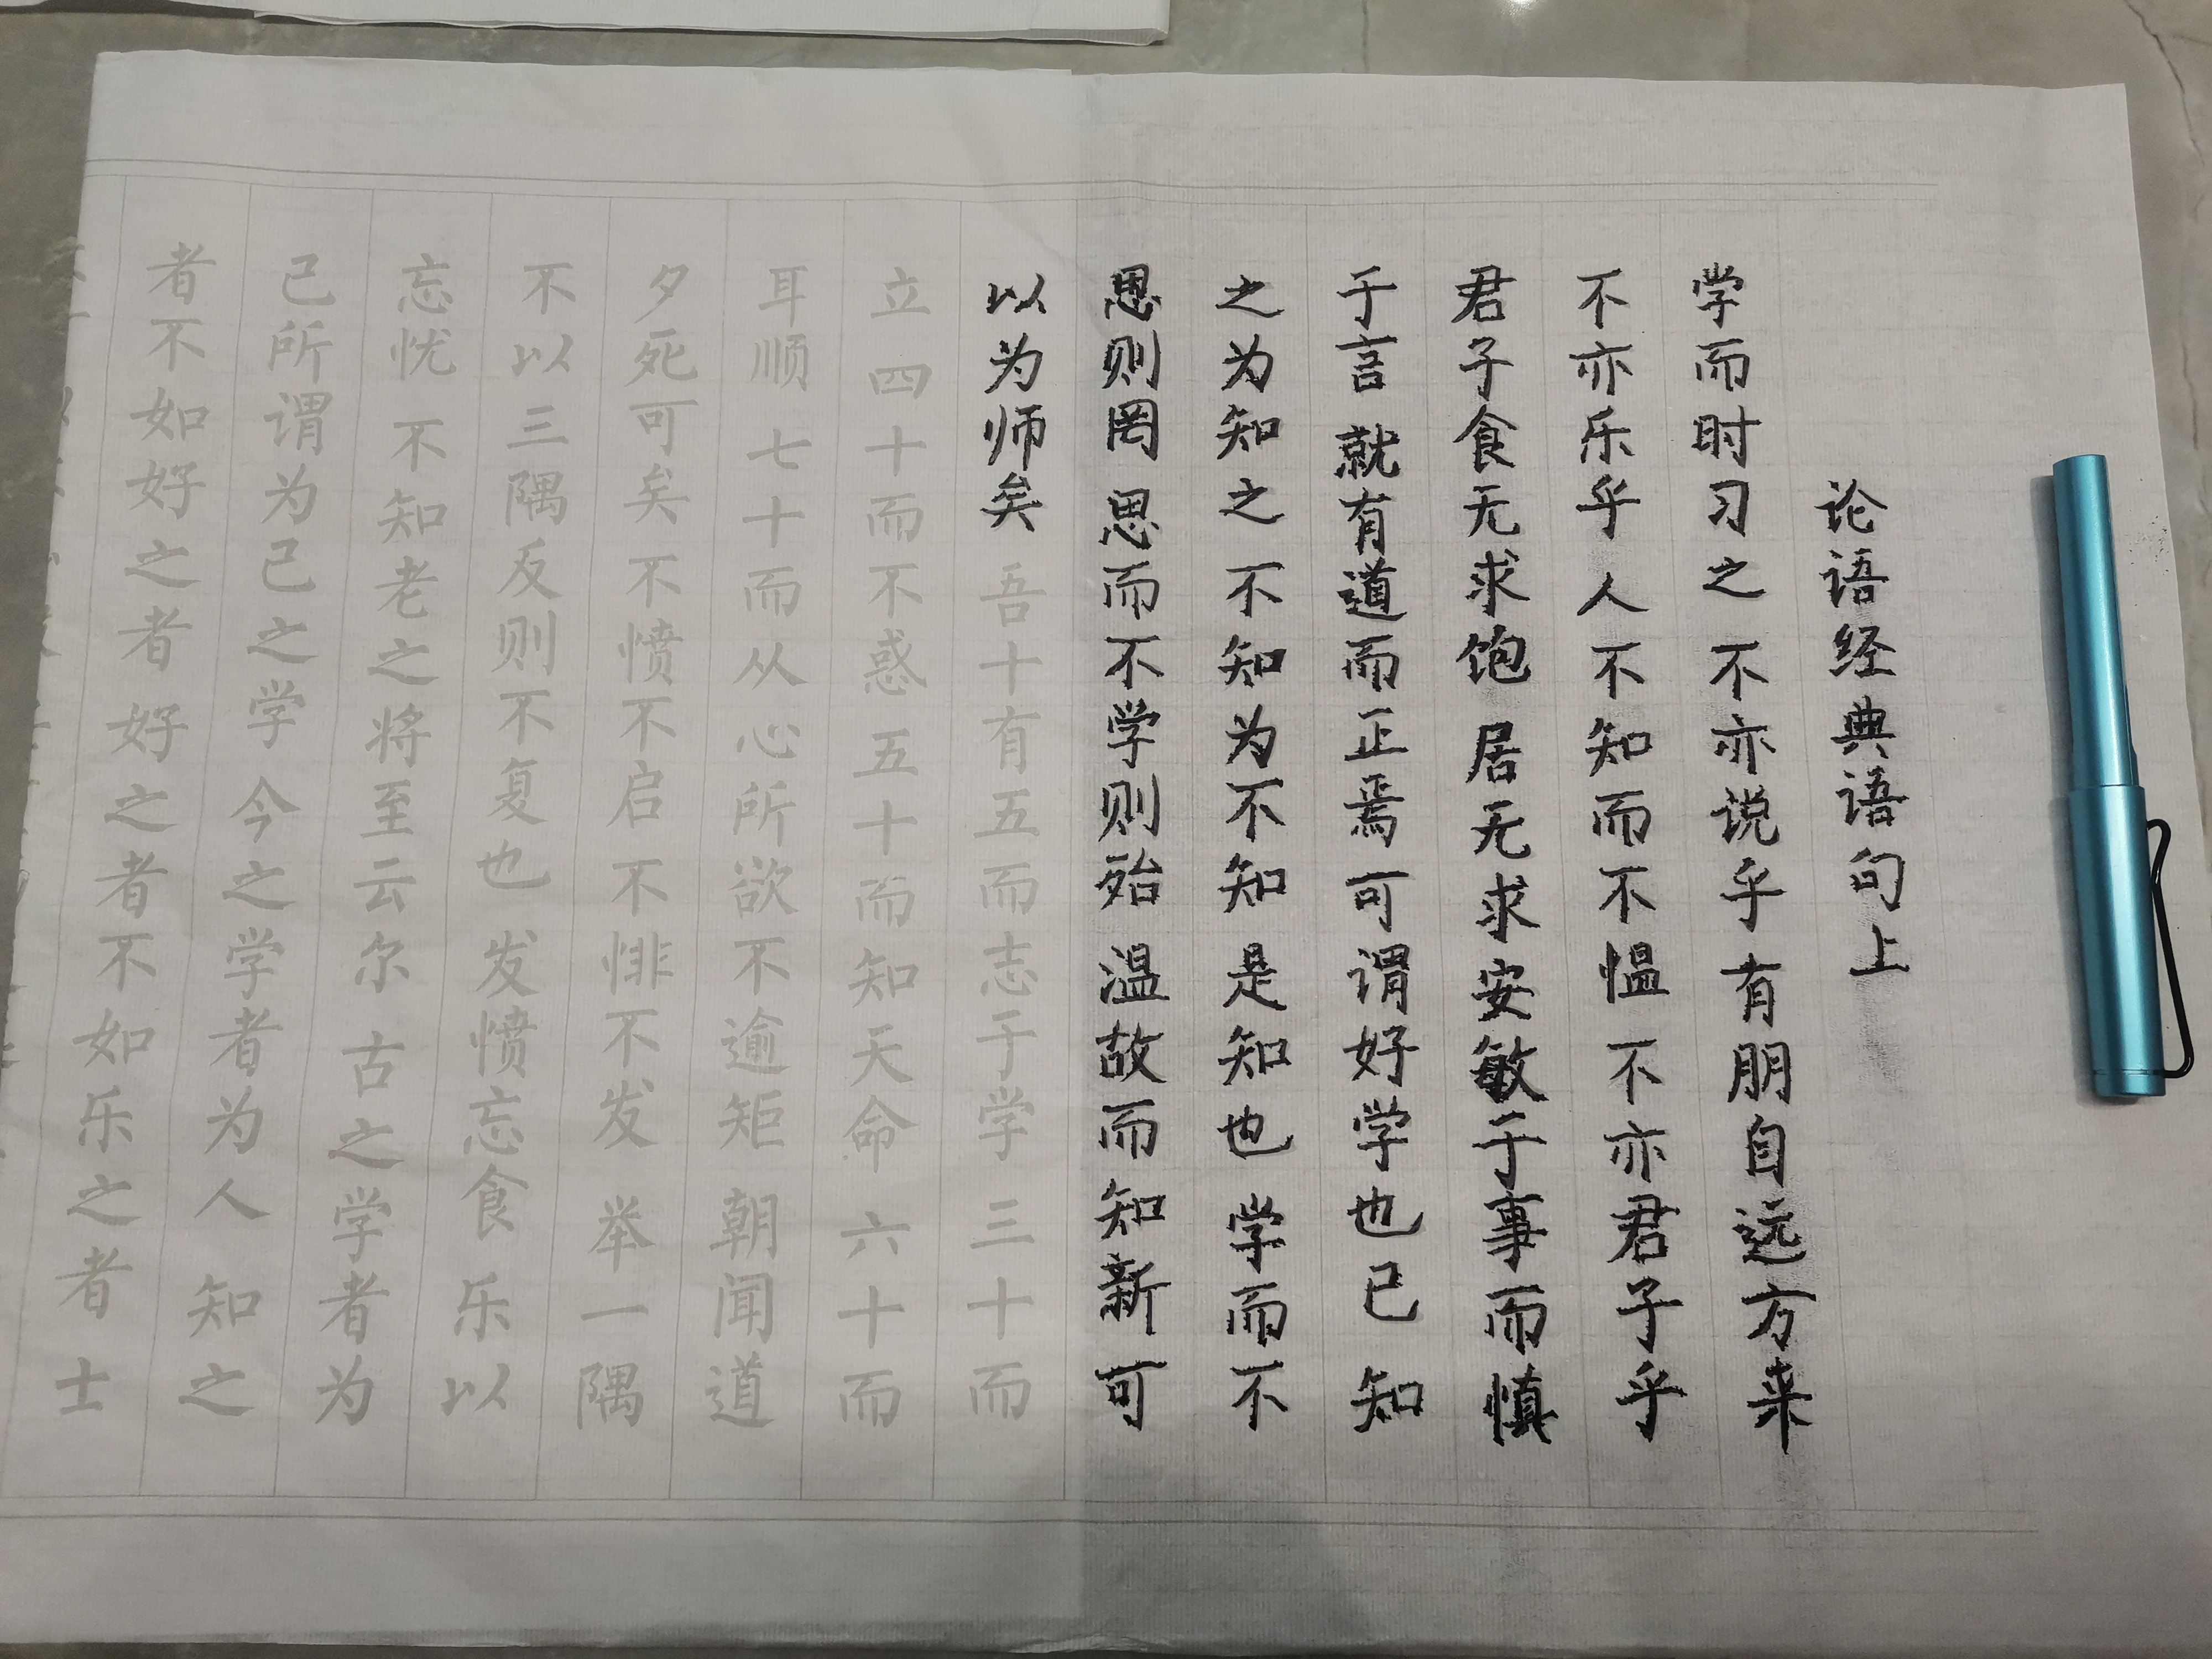 论语经典语句上
学而时习之 不亦说乎 有朋自远方来
不亦乐乎 人不知而不愠 不亦君子乎
君子食无求饱 居无求安 敏于事而慎
于言 就有道而正焉 可谓好学也已 知
之为知之 不知为不知 是知也 学而不
思则罔 思而不学则殆 温故而知新 可
以为师矣 吾十有五而志于学 三十而
立 四十而不惑 五十而知天命 六十而
耳顺 七十而从心所欲 不逾矩 朝闻道
夕死可矣 不愤不启 不悱不发 举一隅
不以三隅反 则不复也 发愤忘食 乐以
忘忧 不知老之将至云尔 古之学者为
己 所谓为己之学 今之学者为人 知之
者不如好之者 好之者不如乐之者 士